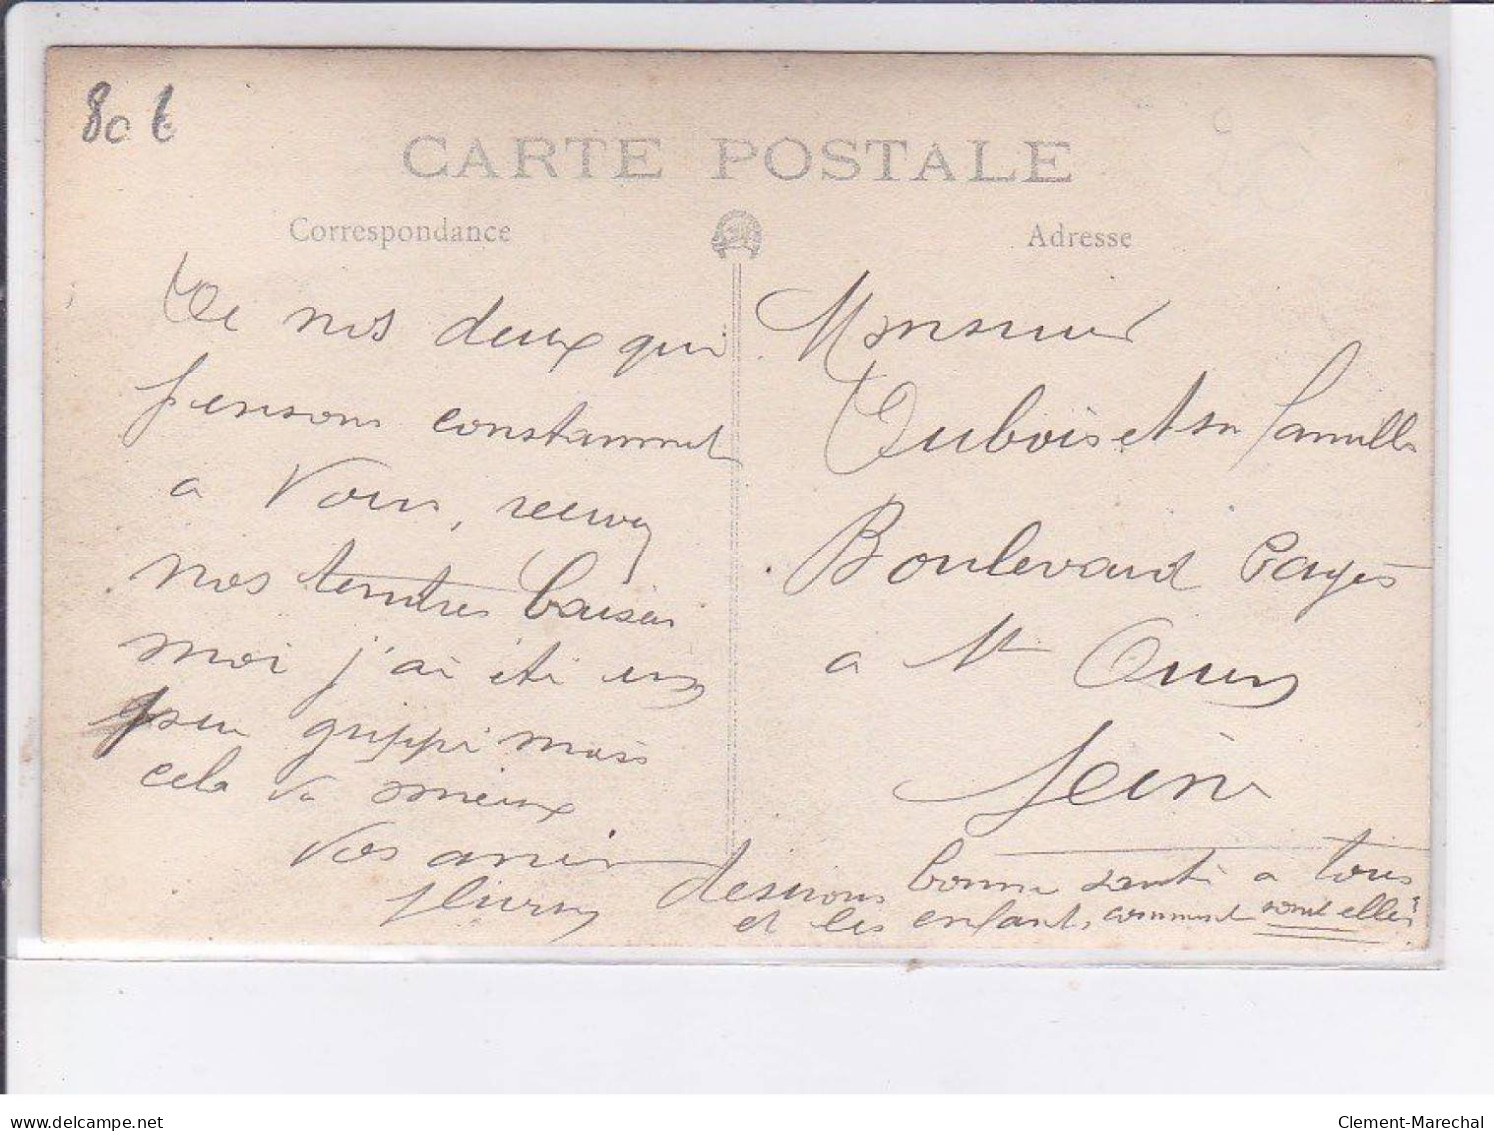 80 €
CARTE POSTALE
Correspondance
Adresse
De nos deux qui
pensons constamment
a Vous, recevez
nos tendres baisers
moi j'ai été un
peu grippé mais
cela va mieux
Vos amis
Fleury
Monsieur
Dubois et sa famille
Boulevard Pagès
a St Ouen
Seine
desirons bonne santé a tous
et les enfants, comment sont elles?
delcampe.net
Clement-Marechal